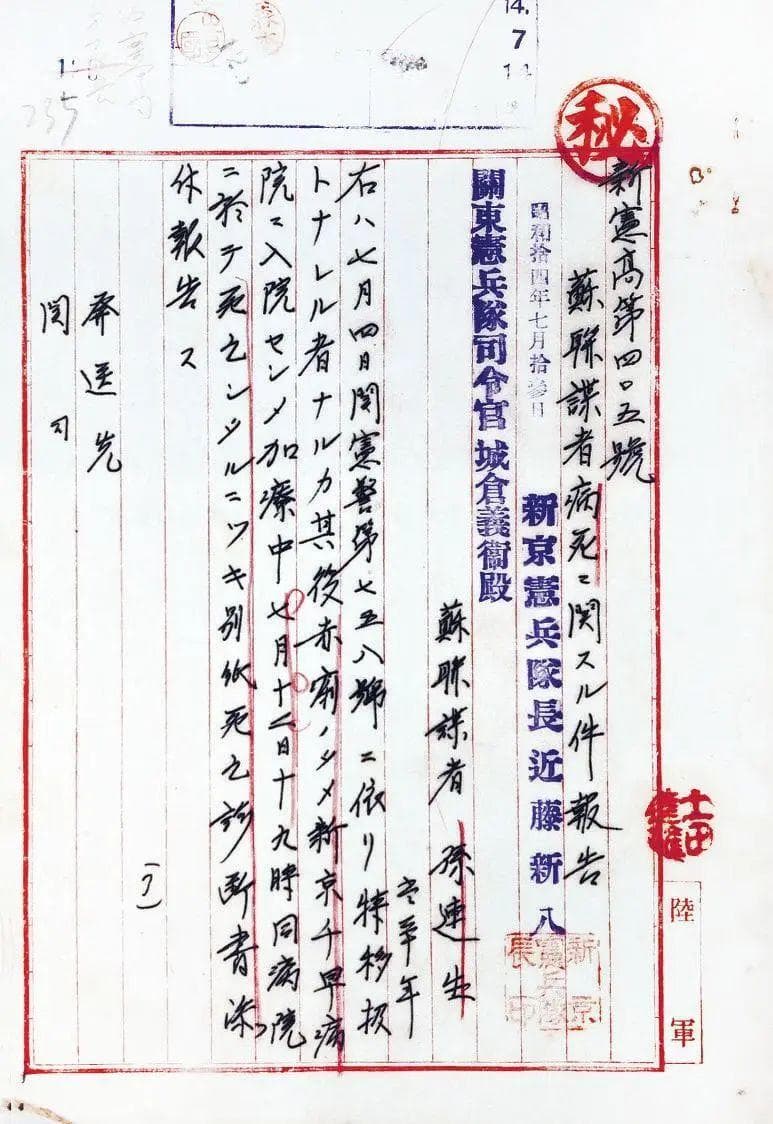 秘
新憲高第四〇五號
蘇聯諜者病死ニ関スル件報告
昭和拾四年七月拾參日
新京憲兵隊長近藤新八
關東憲兵隊司令官城倉義衛殿
蘇聯諜者 孫連生
當
年
右ハ七月四日関憲警第七五八號ニ依リ特移扱
トナレル者ナルカ其後赤痢ノタメ新京千早病
院ニ入院セシメ加療中七月十二日十九時同病院
ニ於テ死亡シタルニツキ別紙死亡診断書添
付報告ス
発送先
関司
(了)
陸軍
14.
7
14
235